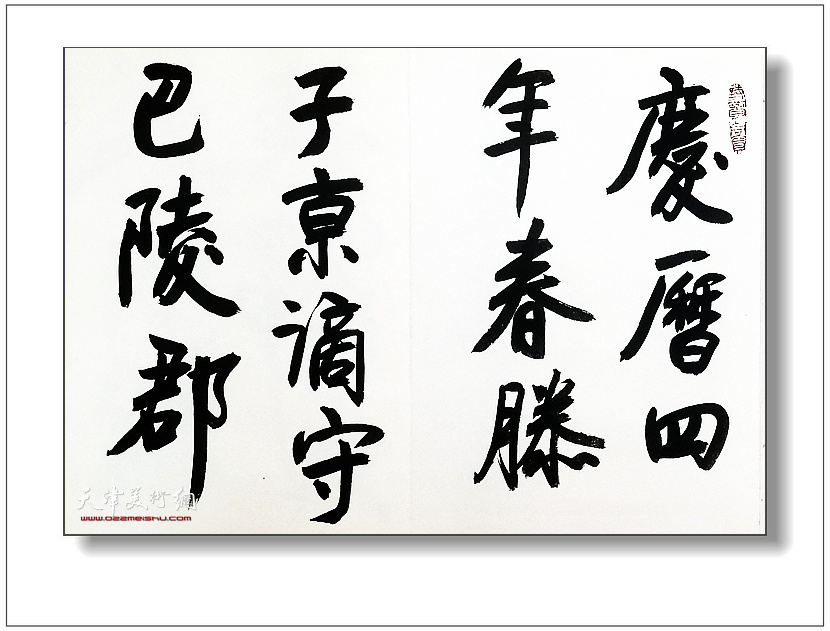 慶曆四
年春滕
子京謫守
巴陵郡
天津美術網
www.022meishu.com